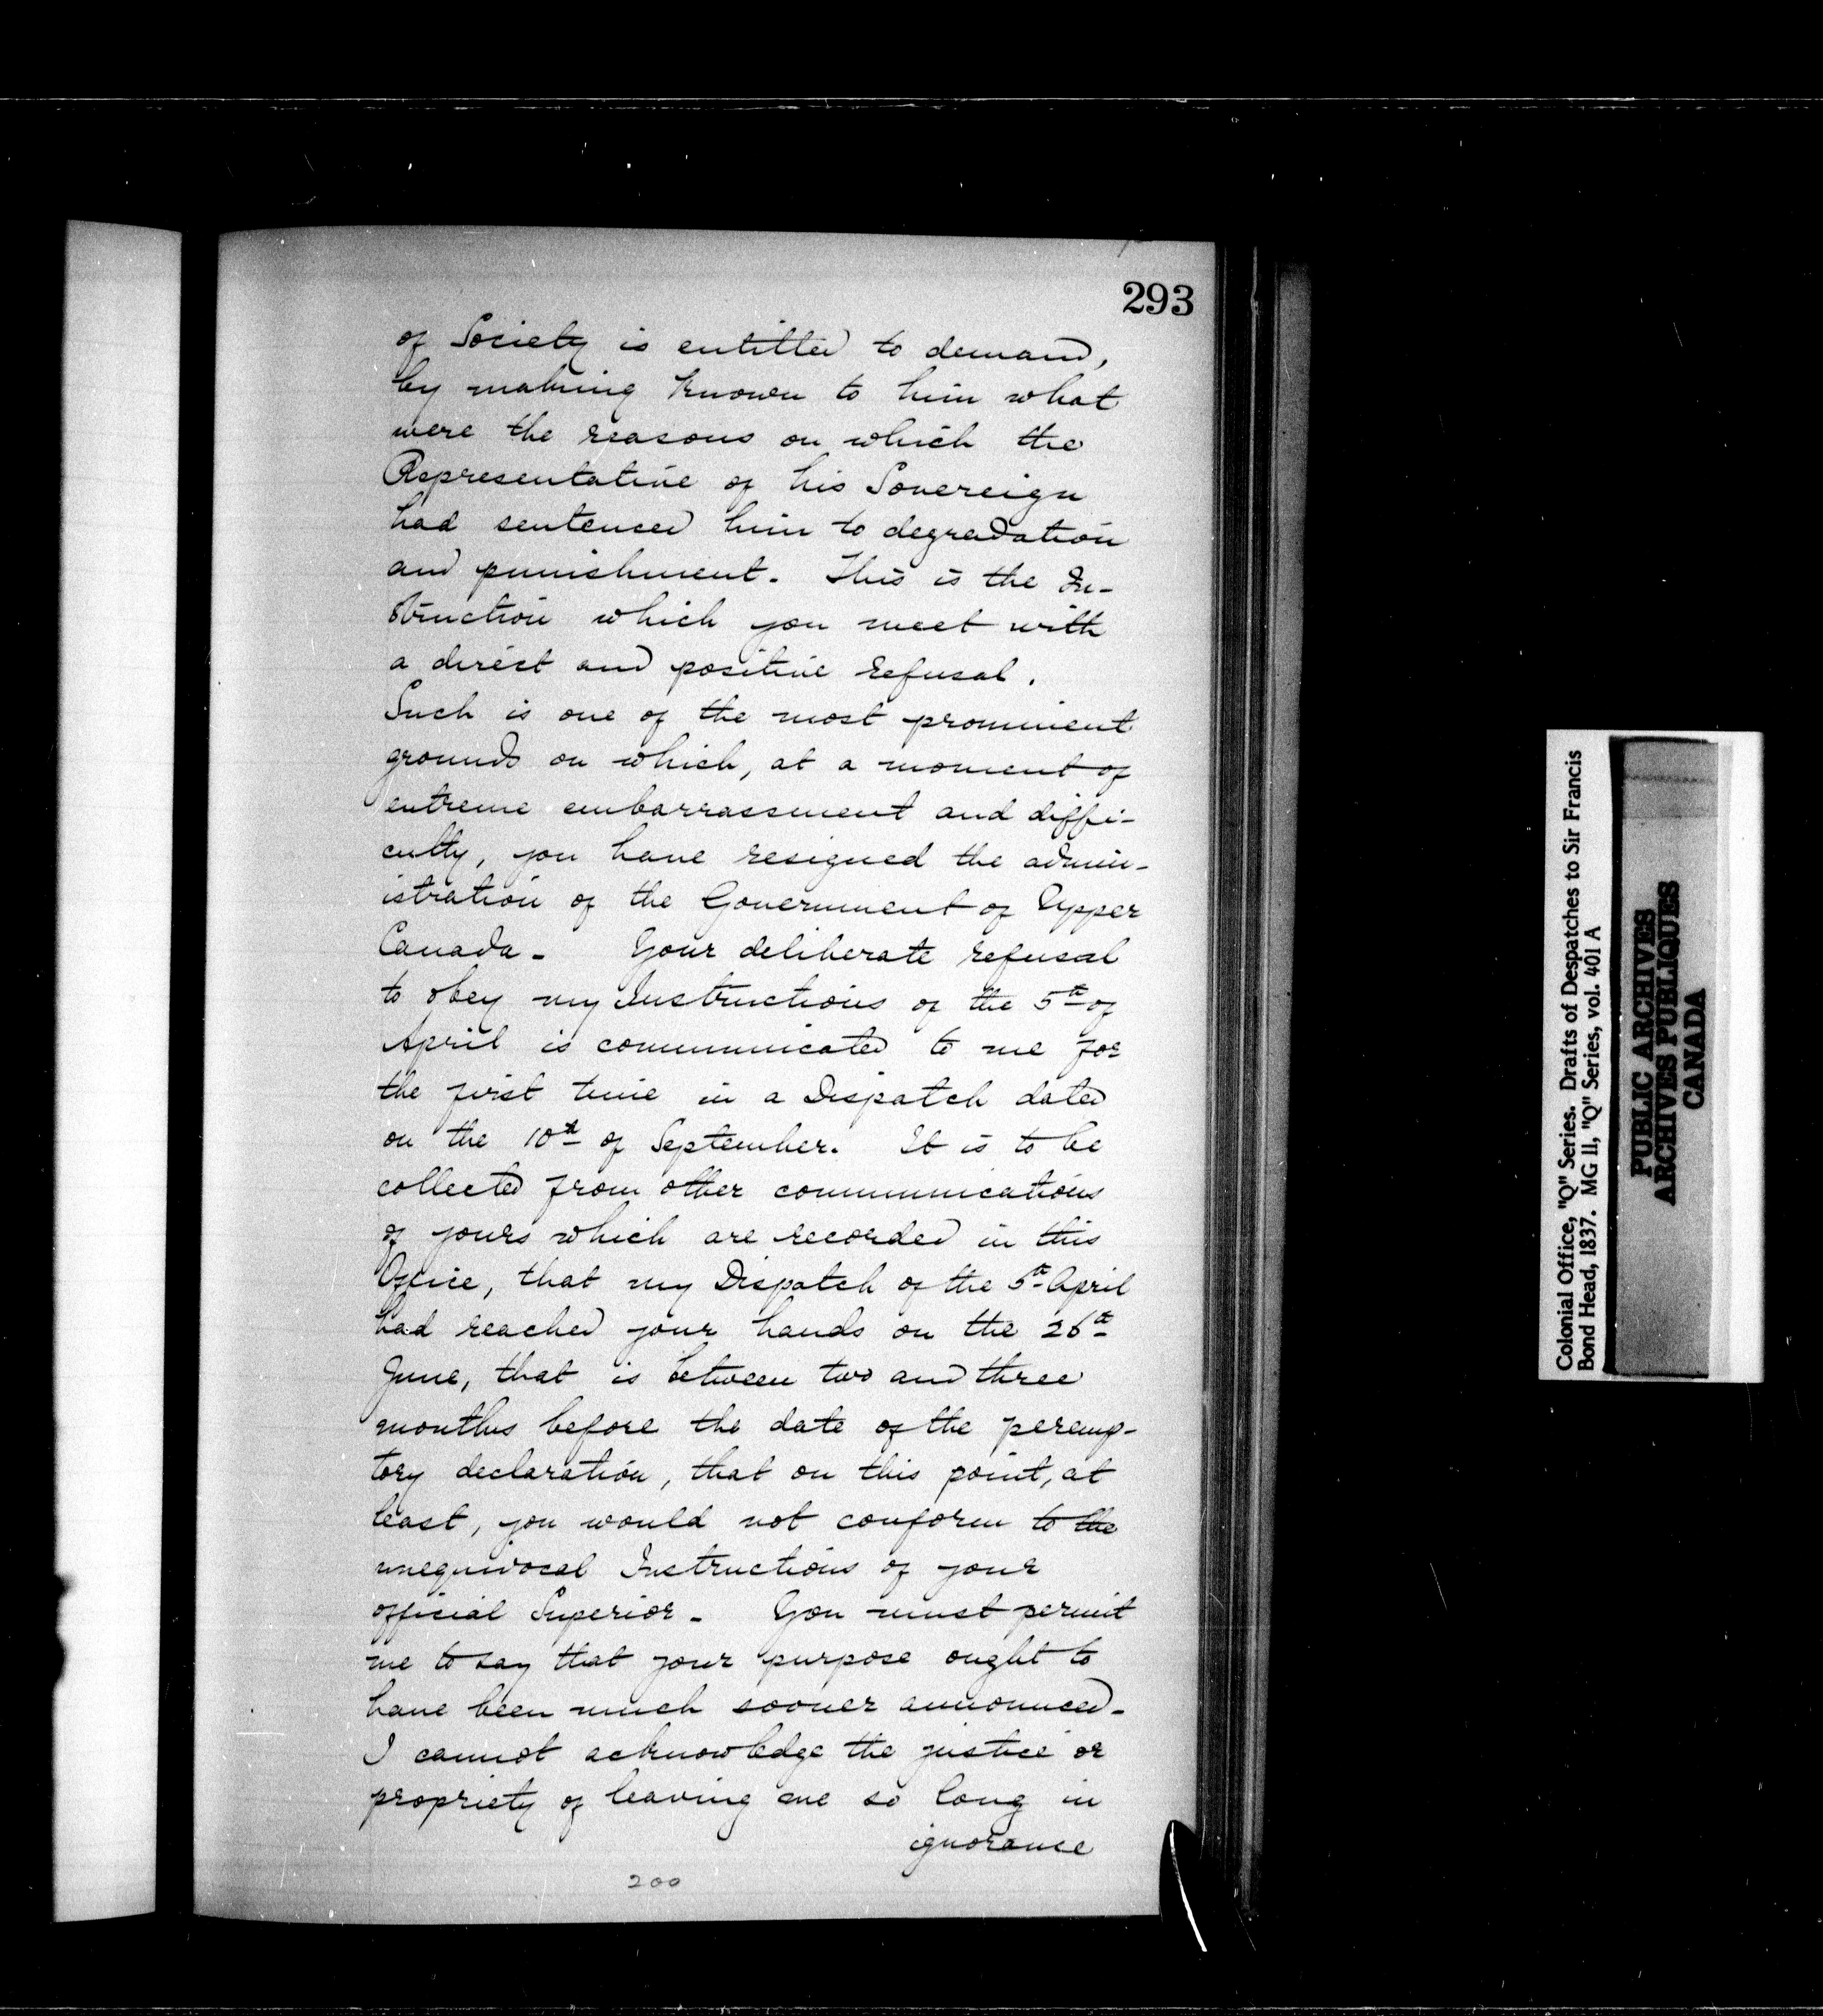 293
of Society is entitled to demand,
by making known to him what
were the reasons on which the
Representative of his Sovereign
had sentenced him to degradation
and punishment. This is the In-
struction which you meet with
a direct and positive refusal.
Such is one of the most prominent
grounds on which, at a moment of
extreme embarrassment and diffi-
culty, you have resigned the admin-
istration of the Government of Upper
Canada - Your deliberate refusal
to obey my Instructions of the 5th of
April is communicated to me for
the first time in a Dispatch dated
on the 10th of September. It is to be
collected from other communications
of yours which are recorded in this
Office, that my Dispatch of the 5th April
had reached your hands on the 26th
June, that is between two and three
months before the date of the peremp-
tory declaration, that on this point, at
least, you would not conform to the
unequivocal Instructions of your
official Superior - You must permit
me to say that your purpose ought to
have been much sooner announced -
I cannot acknowledge the justice or
propriety of leaving me so long in
ignorance
200
Colonial Office, "Q" Series. Drafts of Despatches to Sir Francis
Bond Head, 1837. MG 11, "Q" Series, vol. 401 A
PUBLIC ARCHIVES
ARCHIVES PUBLIQUES
CANADA